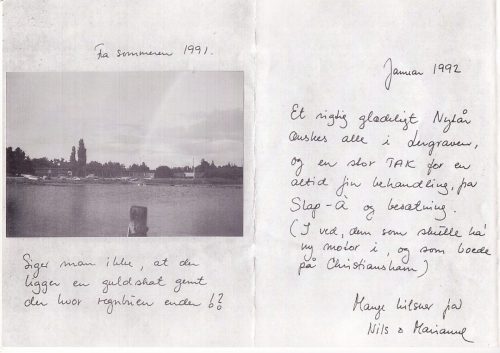 Fra sommeren 1991.
Siger man ikke, at der
ligger en guldskat gemt
der hvor regnbuen ender!?
Januar 1992
Et rigtig glædeligt Nytår
ønskes alle i Lergraven,
og en stor TAK for en
altid fin behandling, fra
Slap-A og besætning.
(I ved, dem som skulle ha'
ny motor i, og som boede
på Christianshavn)
Mange hilsner fra
Nils & Marianne